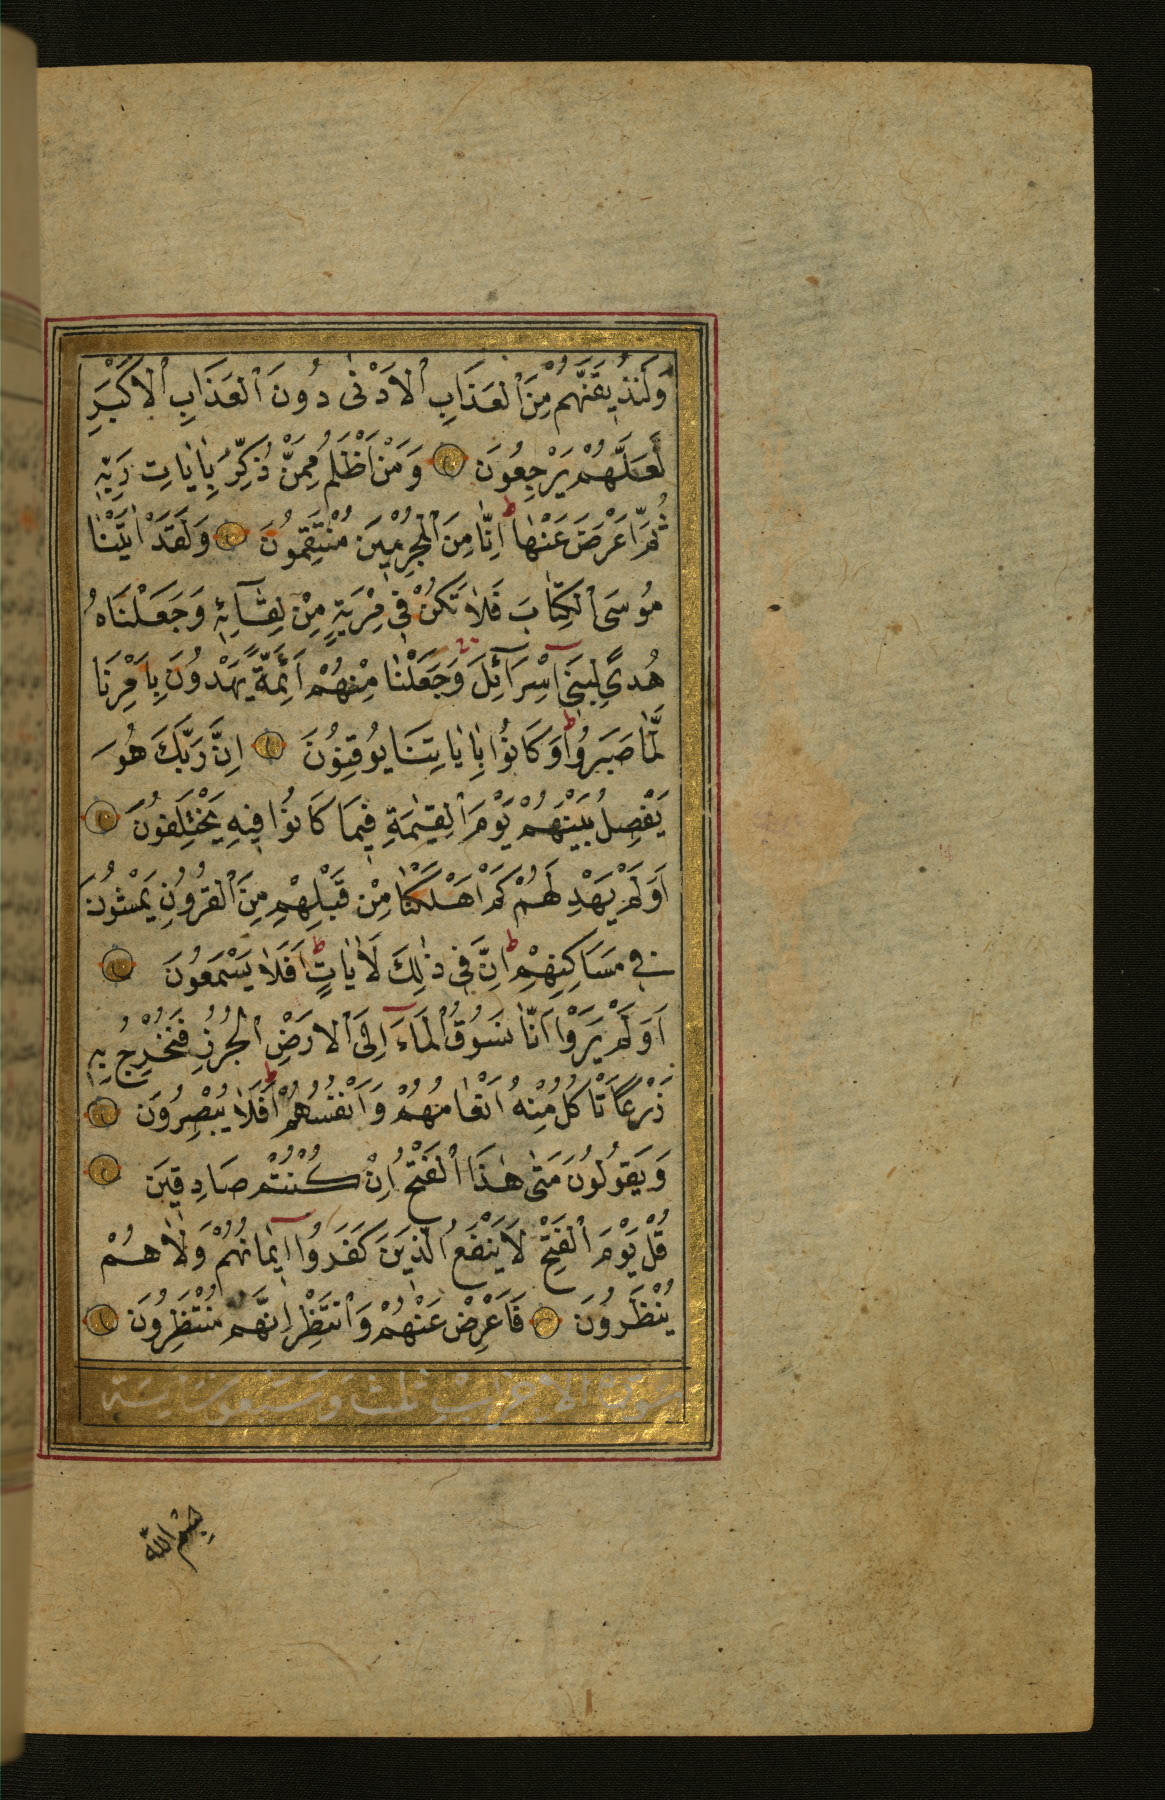 وَلَنُذِيقَنَّهُمْ مِنَ الْعَذَابِ الْاَدْنٰى دُونَ الْعَذَابِ الْاَكْبَرِ
لَعَلَّهُمْ يَرْجِعُونَ وَمَنْ اَظْلَمُ مِمَّنْ ذُكِّرَ بِاٰيَاتِ رَبِّهٖ
ثُمَّ اَعْرَضَ عَنْهَا ط اِنَّا مِنَ الْمُجْرِمٖينَ مُنْتَقِمُونَ وَلَقَدْ اٰتَيْنَا
مُوسَى الْكِتَابَ فَلَا تَكُنْ فٖى مِرْيَةٍ مِنْ لِقَٓائِهٖ وَجَعَلْنَاهُ
هُدًى لِبَنٖٓى اِسْرَٓائِلَ وَجَعَلْنَا مِنْهُمْ اَئِمَّةً يَهْدُونَ بِاَمْرِنَا
لَمَّا صَبَرُوا ط وَكَانُوا بِاٰيَاتِنَا يُوقِنُونَ اِنَّ رَبَّكَ هُوَ
يَفْصِلُ بَيْنَهُمْ يَوْمَ الْقِيٰمَةِ فٖيمَا كَانُوا فٖيهِ يَخْتَلِفُونَ
اَوَلَمْ يَهْدِ لَهُمْ كَمْ اَهْلَكْنَا مِنْ قَبْلِهِمْ مِنَ الْقُرُونِ يَمْشُونَ
فٖى مَسَاكِنِهِمْ ط اِنَّ فٖى ذٰلِكَ لَاٰيَاتٍ ط اَفَلَا يَسْمَعُونَ
اَوَلَمْ يَرَوْا اَنَّا نَسُوقُ الْمَٓاءَ اِلَى الْاَرْضِ الْجُرُزِ فَنُخْرِجُ بِهٖ
زَرْعًا تَاْكُلُ مِنْهُ اَنْعَامُهُمْ وَاَنْفُسُهُمْ ط اَفَلَا يُبْصِرُونَ
وَيَقُولُونَ مَتٰى هٰذَا الْفَتْحُ اِنْ كُنْتُمْ صَادِقٖينَ
قُلْ يَوْمَ الْفَتْحِ لَا يَنْفَعُ الَّذٖينَ كَفَرُٓوا اٖيمَانُهُمْ وَلَا هُمْ
يُنْظَرُونَ فَاَعْرِضْ عَنْهُمْ وَانْتَظِرْ اِنَّهُمْ مُنْتَظِرُونَ
سورة الاحزاب ثلث وسبعون اية
بِسْمِ اللّٰهِ